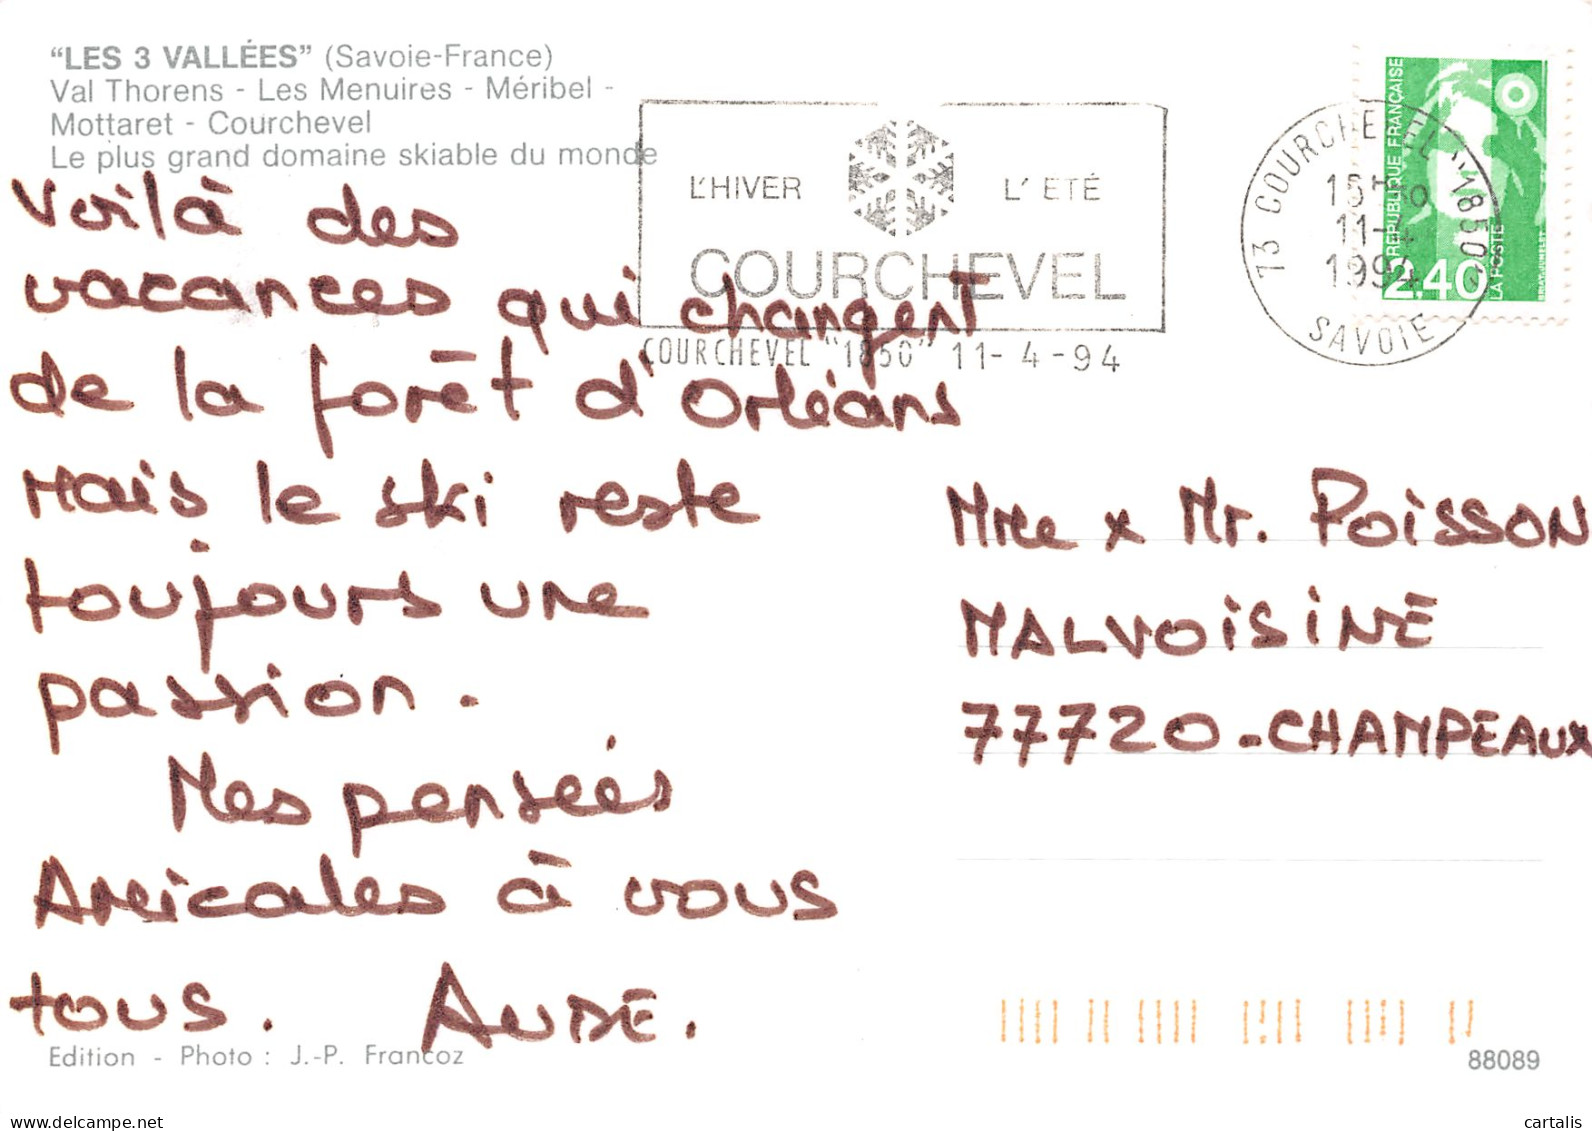 “LES 3 VALLÉES” (Savoie-France)
Val Thorens - Les Menuires - Méribel -
Mottaret - Courchevel
Le plus grand domaine skiable du monde
L'HIVER L'ETÉ
COURCHEVEL
COURCHEVEL "1850" 11-4-94
73 COURCHEVEL "1850"
11-4
1994
SAVOIE
REPUBLIQUE FRANÇAISE
2,40
LA POSTE
Voilà des
vacances qui changent
de la forêt d'Orléans
Mais le ski reste
toujours une
passion.
Mes pensées
Amicales à vous
tous. AUDE.
Mme x Mr. POISSON
MALVOISINE
77720-CHAMPEAUX
Edition - Photo : J.-P. Francoz
88089
www.delcampe.net
cartalis